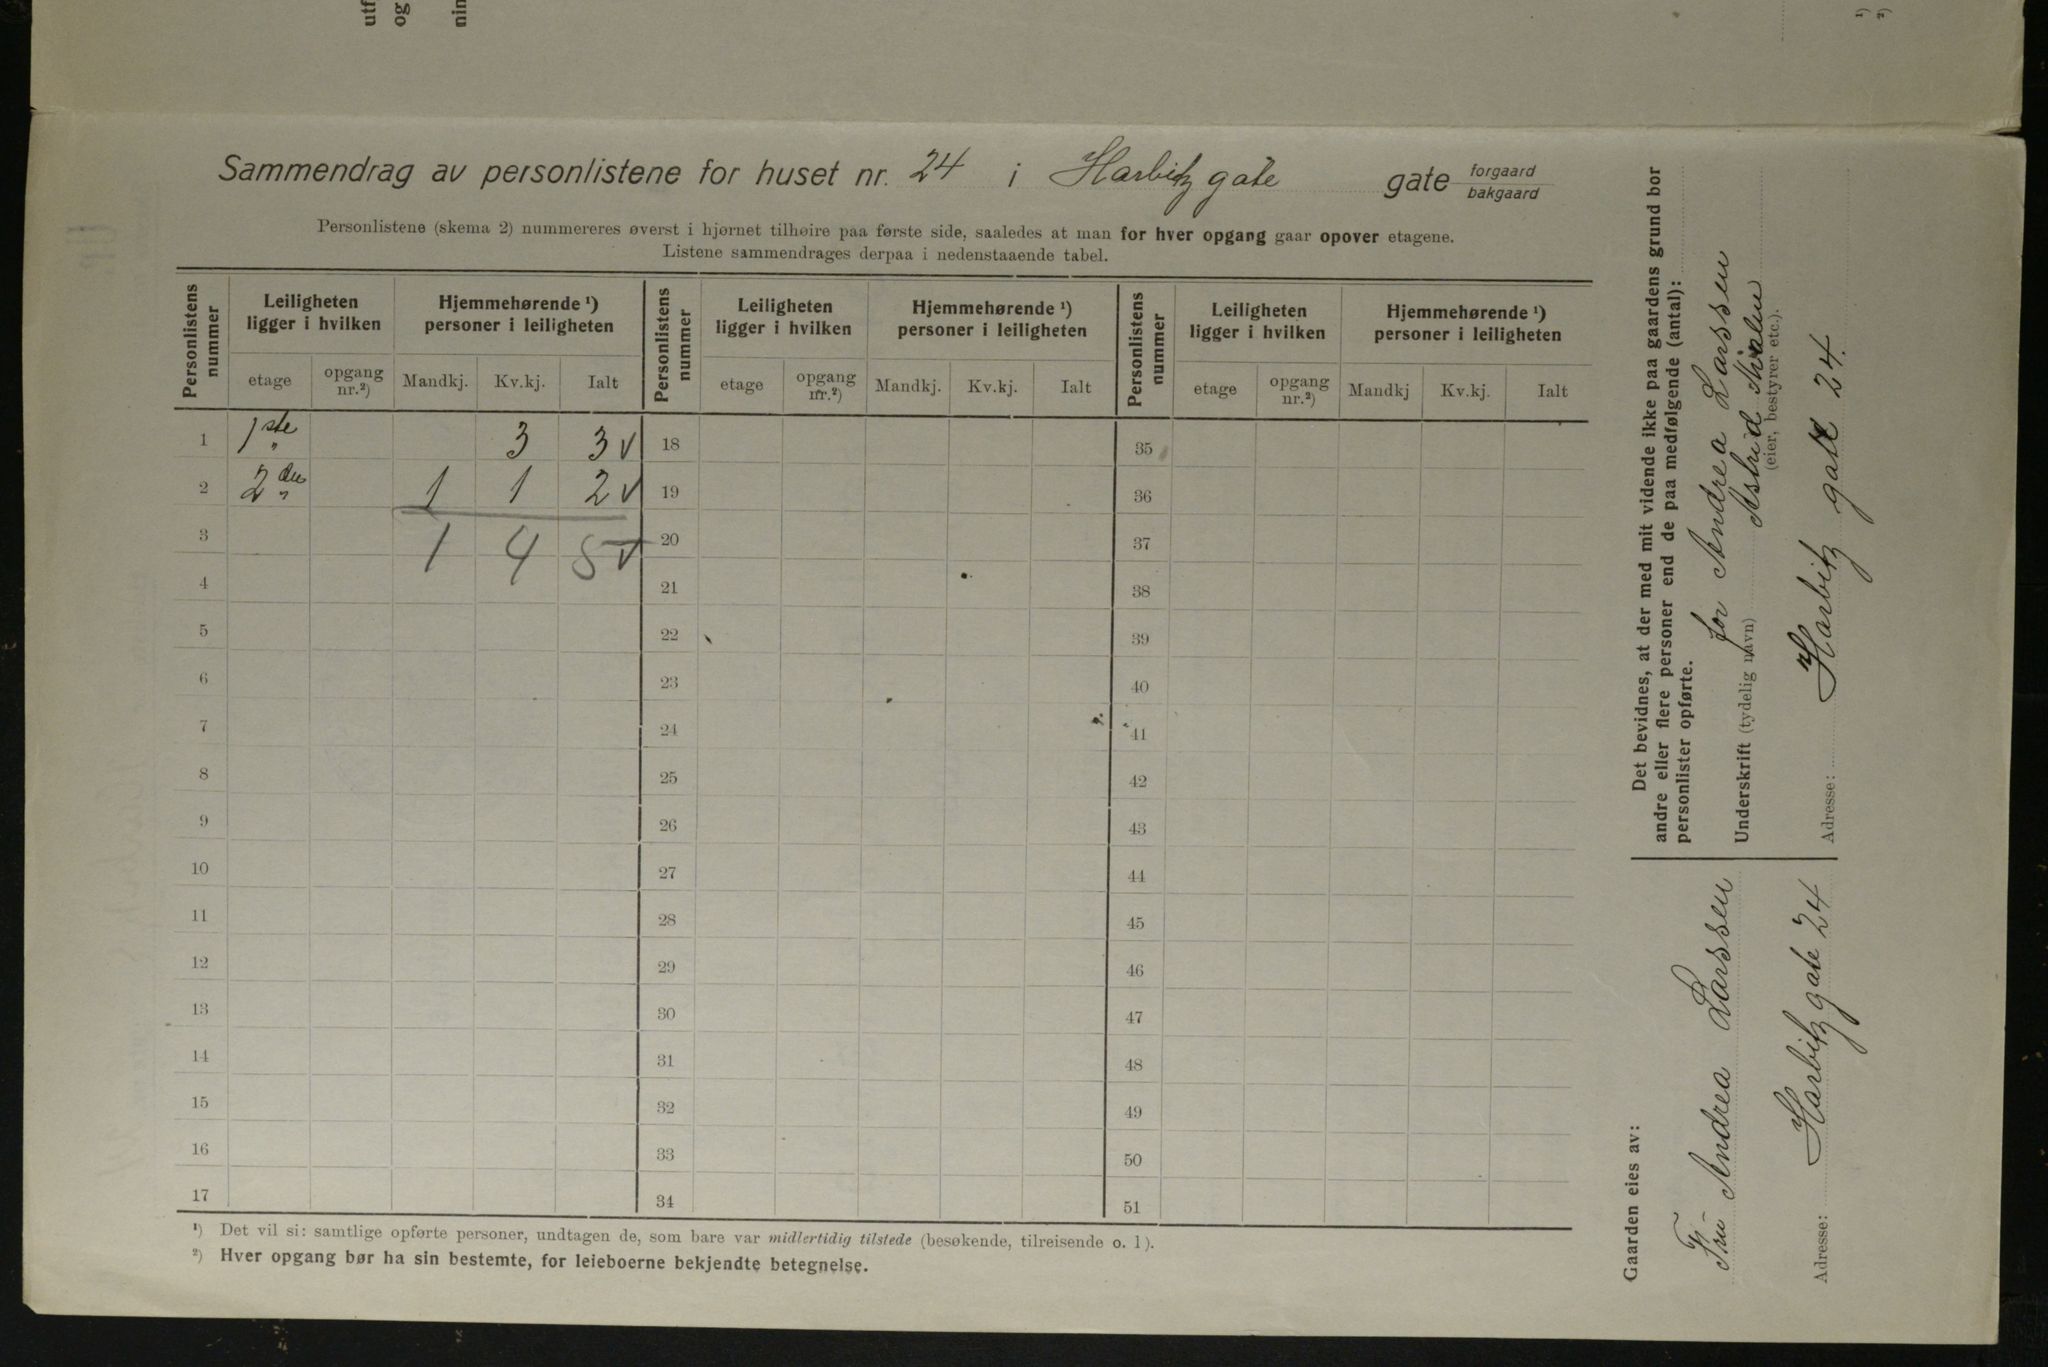 utf
og
nin
¹)
²)
Sammendrag av personlistene for huset nr. 24 i Harbitz gate gate forgaard
bakgaard
Personlistene (skema 2) nummereres øverst i hjørnet tilhøire paa første side, saaledes at man for hver opgang gaar opover etagene.
Listene sammendrages derpaa i nedenstaaende tabel.
Personlistens nummer | Leiligheten ligger i hvilken | Hjemmehørende ¹) personer i leiligheten | Personlistens nummer | Leiligheten ligger i hvilken | Hjemmehørende ¹) personer i leiligheten | Personlistens nummer | Leiligheten ligger i hvilken | Hjemmehørende ¹) personer i leiligheten
etage | opgang nr.²) | Mandkj. | Kv.kj. | Ialt | etage | opgang nr.²) | Mandkj. | Kv.kj. | Ialt | etage | opgang nr.²) | Mandkj | Kv.kj. | Ialt
1 1ste " 3 3 √ 18 35
2 2den " 1 1 2 √ 19 36
3 1 4 5 √ 20 37
4 21 38
5 22 39
6 23 40
7 24 41
8 25 42
9 26 43
10 27 44
11 28 45
12 29 46
13 30 47
14 31 48
15 32 49
16 33 50
17 34 51
¹) Det vil si: samtlige opførte personer, undtagen de, som bare var midlertidig tilstede (besøkende, tilreisende o. l).
²) Hver opgang bør ha sin bestemte, for leieboerne bekjendte betegnelse.
Gaarden eies av:
Fru Andrea Larssen
Adresse: Harbitz gate 24
Det bevidnes, at der med mit vidende ikke paa gaardens grund bor
andre eller flere personer end de paa medfølgende (antal):
personlister opførte.
for Andrea Larssen
Underskrift (tydelig navn) Astrid
(eier, bestyrer etc.).
Adresse: Harbitz gate 24.